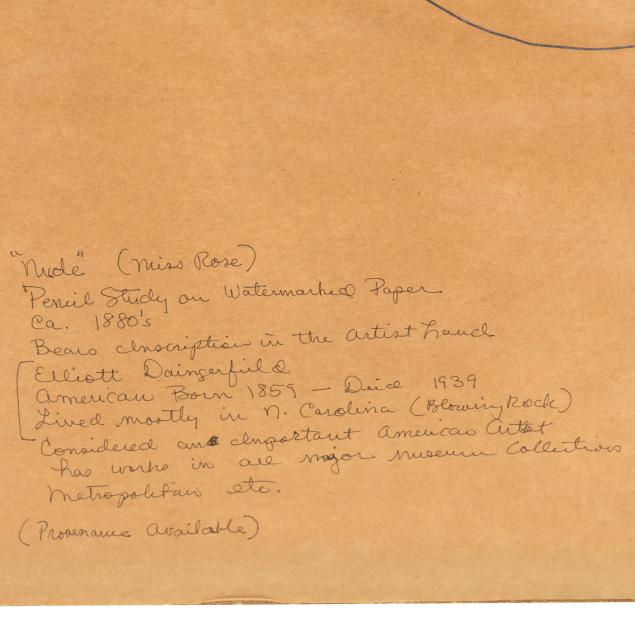 "Nude" (Miss Rose)
Pencil Study on Watermarked Paper
Ca. 1880's
Bears Inscription in the artist hand
Elliott Daingerfield
American Born 1859 — Deid 1939
Lived mostly in N. Carolina (Blowing Rock)
Considered an Important American Artist
has works in all major museum Collections
Metropolitan etc.
(Provenance Available)